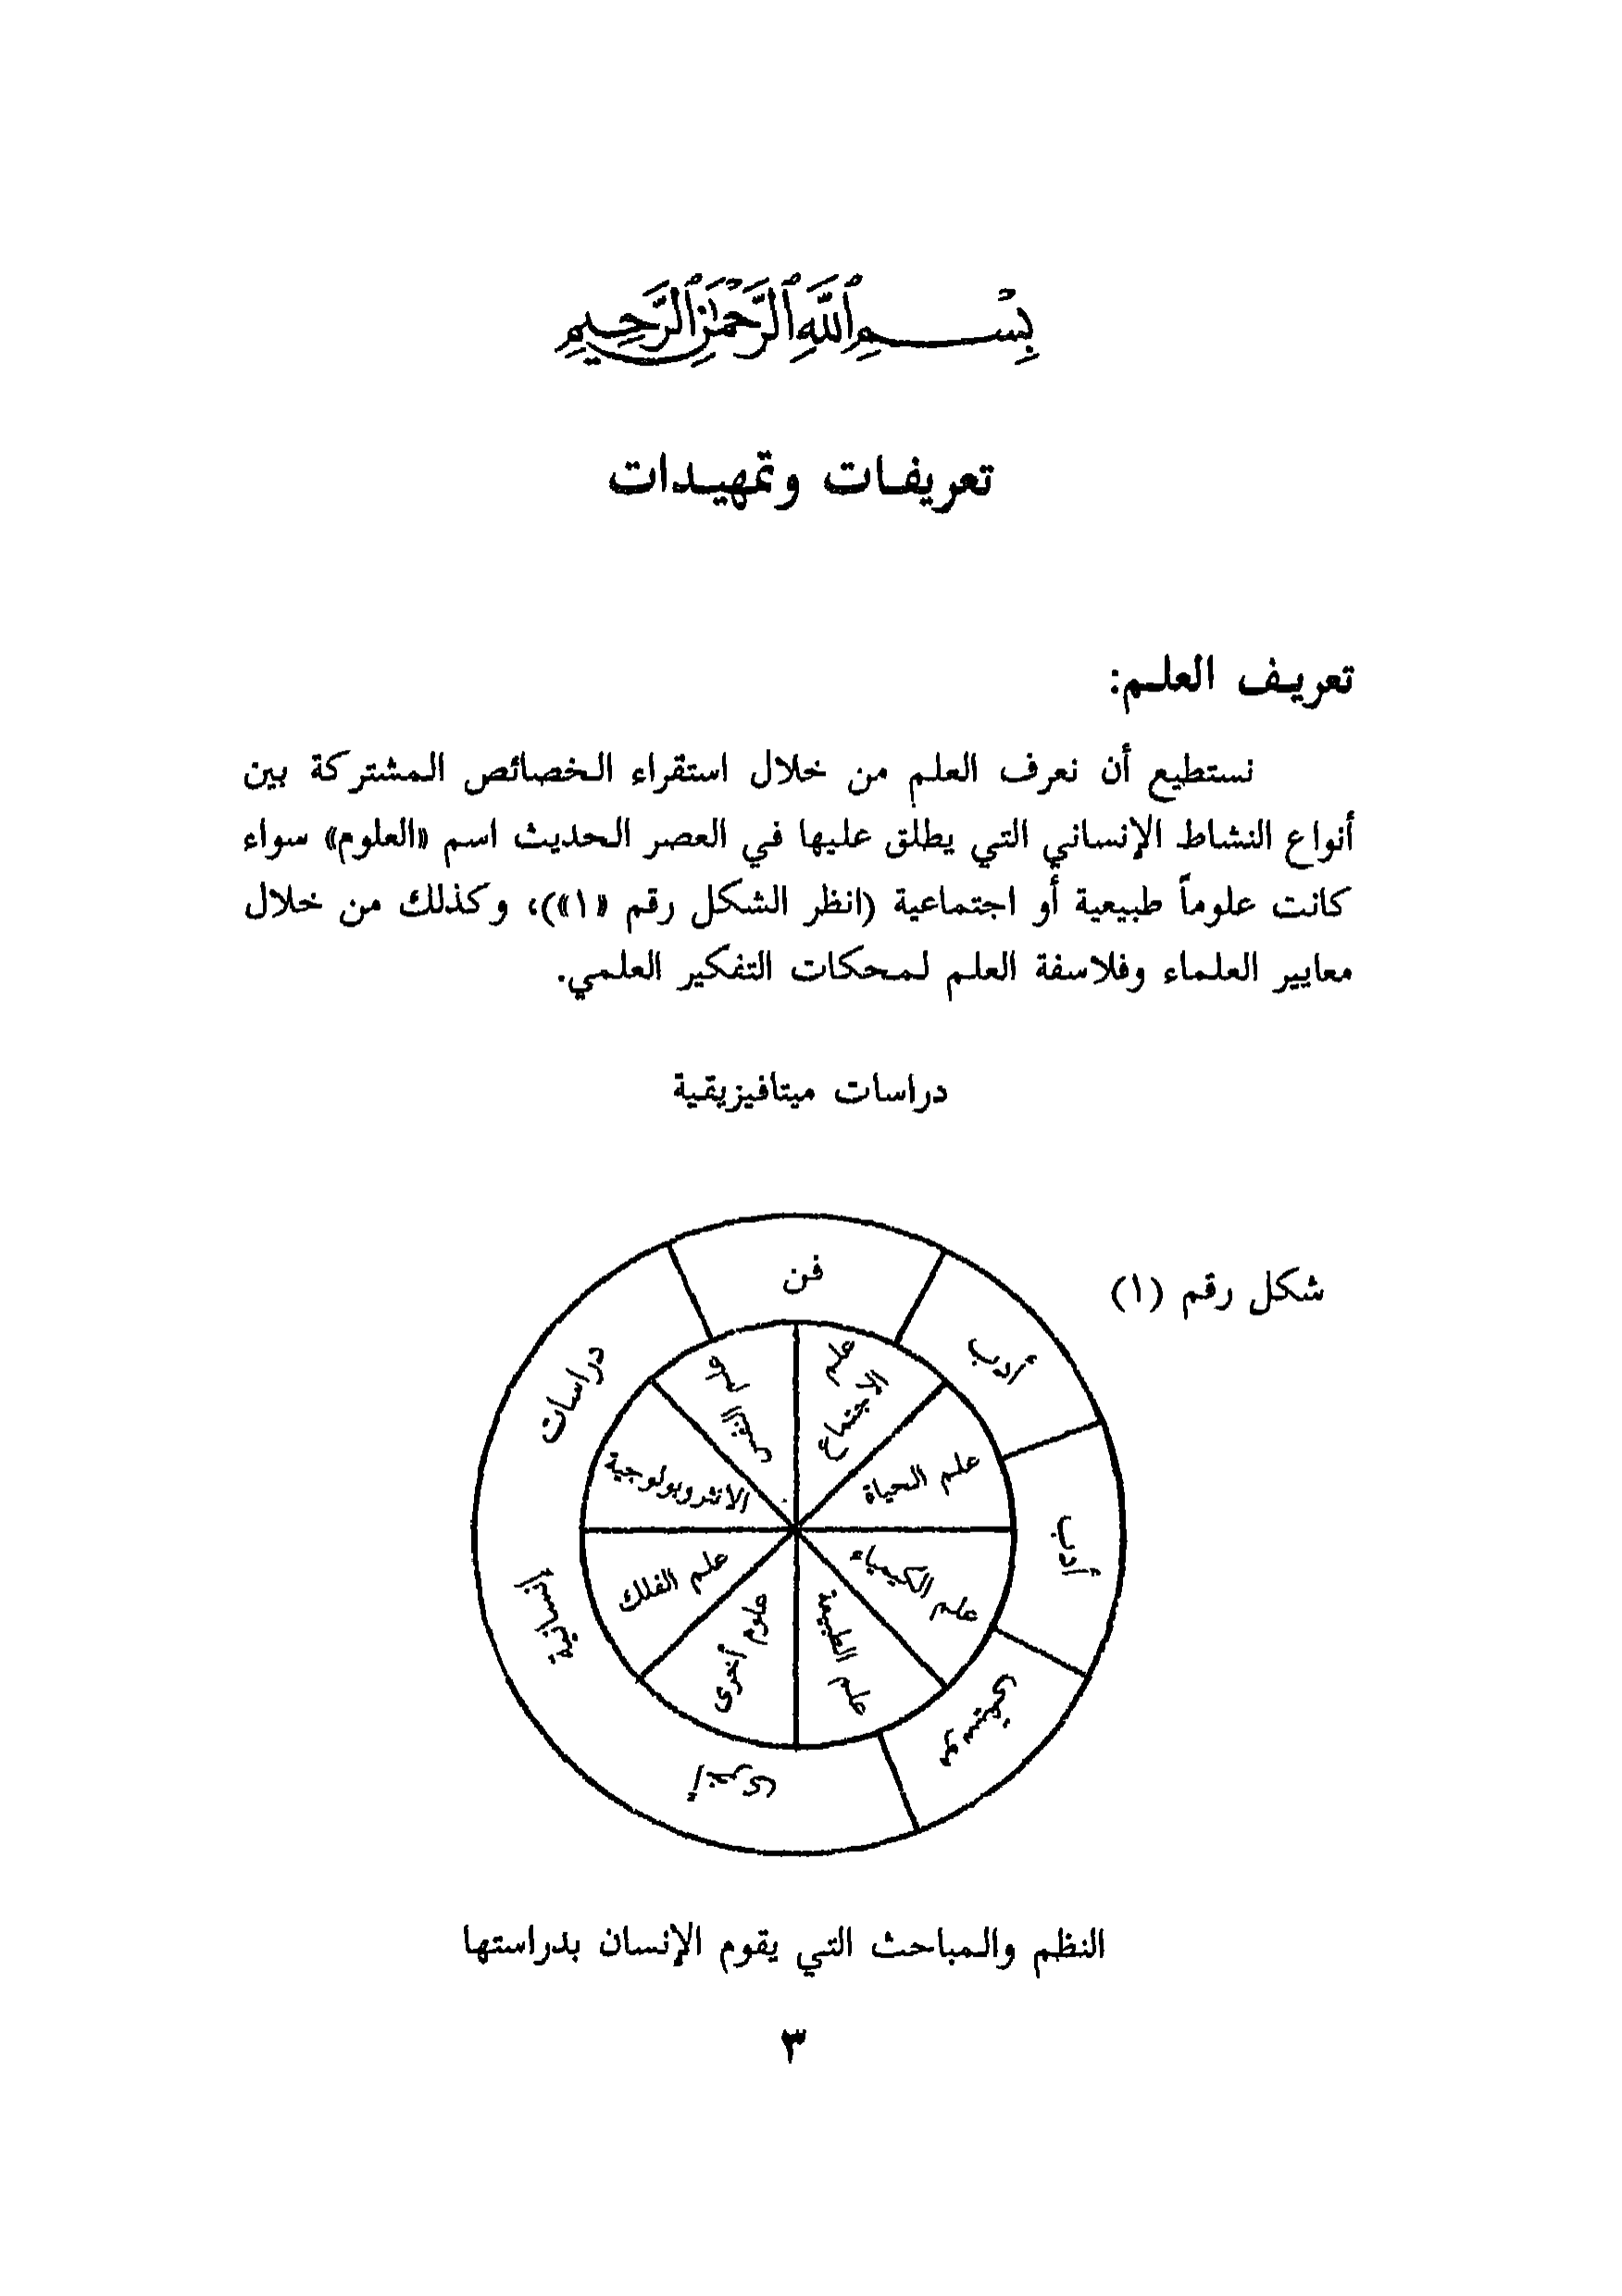 بِسْمِ ٱللَّهِ ٱلرَّحْمَٰنِ ٱلرَّحِيمِ
تعريفات وتمهيدات
تعريف العلم:
نستطيع أن نعرف العلم من خلال استقراء الخصائص المشتركة بين
أنواع النشاط الإنساني التي يطلق عليها في العصر الحديث اسم «العلوم» سواء
كانت علوماً طبيعية أو اجتماعية (انظر الشكل رقم «١»)، وكذلك من خلال
معايير العلماء وفلاسفة العلم لمحكات التفكير العلمي.
دراسات ميتافيزيقية
شكل رقم (١)
فن
أدب
أدب
موسيقى
دراسات
إنسانية
أخرى
علم
الاجتماع
علم الحياة
علم الكيمياء
علم الطبيعة
علوم أخرى
علم الفلك
الانثروبولوجية
علم
النفس
النظم والمباحث التي يقوم الإنسان بدراستها
٣